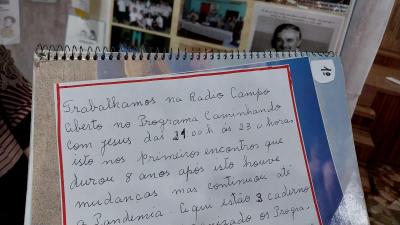 1º
Trabalhamos na Rádio Campo
Aberto no Programa Caminhando
com Jesus das 21.00h às 23.0 horas,
isto nos primeiros encontros que
durou 8 anos após isto houve
mudanças mas continuou até
a Pandemia. Aqui estão 3 caderno
os Progra.